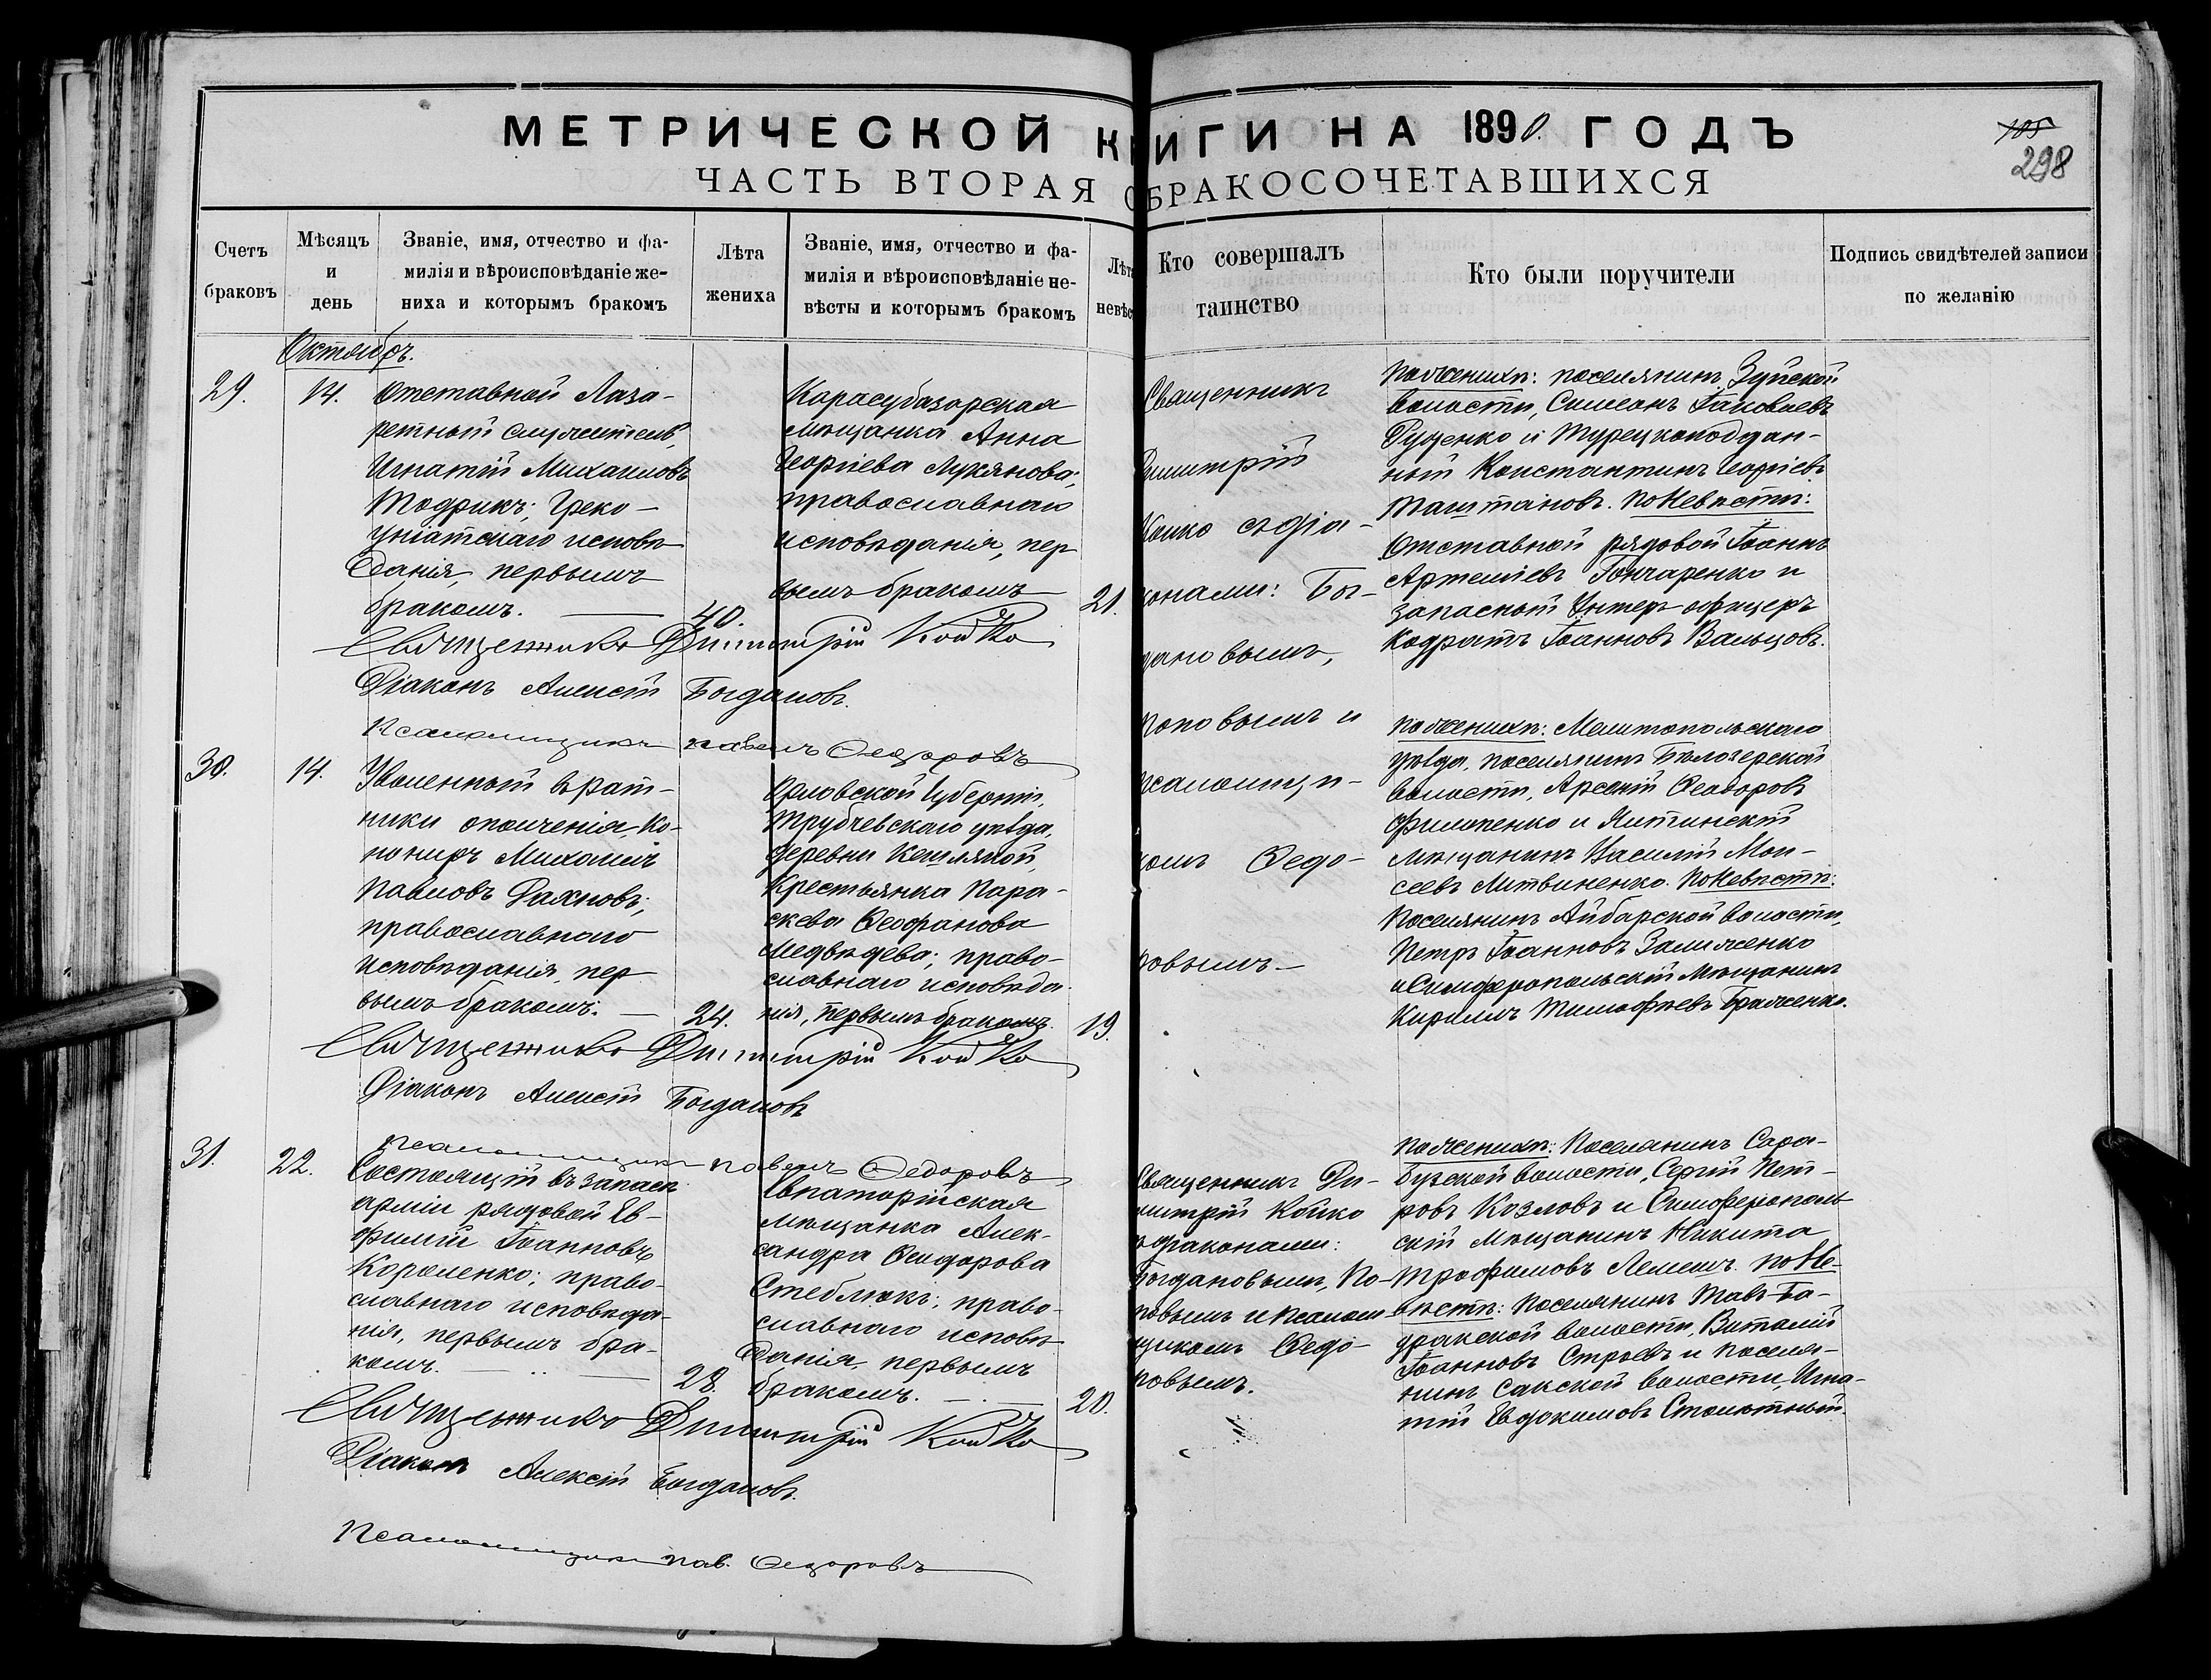 МЕТРИЧЕСКОЙ КНИГИ НА 1890 ГОДЪ
105
298
ЧАСТЬ ВТОРАЯ О БРАКОСОЧЕТАВШИХСЯ
Счетъ
браковъ
Мѣсяцъ
и
день
Званіе, имя, отчество и фа-
милія и вѣроисповѣданіе же-
ниха и которымъ бракомъ
Лѣта
жениха
Званіе, имя, отчество и фа-
милія и вѣроисповѣданіе не-
вѣсты и которымъ бракомъ
Лѣта
невѣс
Кто совершалъ
таинство
Кто были поручители
Подпись свидѣтелей записи
по желанію
Октябрь.
29.
14.
Отставной Лаза-
ретный служитель,
Игнатій Михаиловъ
Модрикъ; Греко-
Уніатскаго исповѣ
данія, первымъ
бракомъ.
40.
Карасубазарская
мѣщанка Анна
Георгіева Лукянова;
православнаго
исповѣданія, пер
вымъ бракомъ
21.
Священникъ
Димитрій
Койко съ діа-
конами: Бог-
дановымъ,
Поповымъ и
псаломщи-
комъ Ѳедо-
ровымъ
По женихѣ: поселянинъ Зуйской
волости, Симеонъ Іаковлевъ
Руденко и Турецкоподдан-
ный Константинъ Георгіевъ
Таштановъ. По невѣстѣ:
Отставной рядовой Іоаннъ
Артеміевъ Гончаренко и
запасный Унтеръ офицеръ
Кодратъ Іоанновъ Вальцовъ.
Священникъ Димитрій Койко
Діаконъ Алексій Богдановъ.
Псаломщикъ Павелъ Ѳедоровъ
30.
14.
Уволенный въ рат-
ники ополченія, Ко-
нониръ Михаилъ
Павловъ Рахновъ;
православнаго
исповѣданія, пер
вымъ бракомъ.
24.
Орловской Губерніи,
Трубчевскаго уѣзда,
деревни
Крестьянка Пара-
скева Ѳеофанова
Медвѣдева; право-
славнаго исповѣда-
нія, первымъ бракомъ.
19.
По женихѣ: Мелитопольскаго
уѣзда, поселянинъ Бѣлозерской
волости, Арсеній Ѳеодоровъ
Филипенко и Ялтинскій
мѣщанинъ Василій Мои-
сеевъ Литвиненко. По невѣстѣ:
Поселянинъ Айбарской волости,
Петръ Іоанновъ Залиженко
и Симферопольскій Мѣщанинъ
Кириллъ Тимофѣевъ Браженко.
Священникъ Димитрій Койко
Діаконъ Алексій Богдановъ
Псаломщикъ Павелъ Ѳедоровъ
31.
22.
Состоящій въ запасѣ
арміи рядовой Ев-
фимій Іоанновъ
Короленко; право-
славнаго исповѣда-
нія, первымъ бра-
комъ.
28.
Евпаторійская
мѣщанка Алек-
сандра Исидорова
Стеблюкъ; право-
славнаго исповѣ
данія, первымъ
бракомъ.
20.
Священникъ Ди-
митрій Койко
съ діаконами:
Богдановымъ, По-
повымъ и псалом
щикомъ Ѳедо-
ровымъ.
По женихѣ: Поселянинъ Сара-
бузской волости, Сергій Пет-
ровъ Козловъ и Симферополь
скій мѣщанинъ Никита
Трофимовъ Лемешъ. По не-
вѣстѣ: Поселянинъ Тавъ-Ба-
дракской волости, Виталій
Іоанновъ Строевъ и поселя-
нинъ Сакской волости, Игна-
тій Евдокимовъ Столютный.
Священникъ Димитрій Койко
Діаконъ Алексій Богдановъ.
Псаломщикъ Пав. Ѳедоровъ